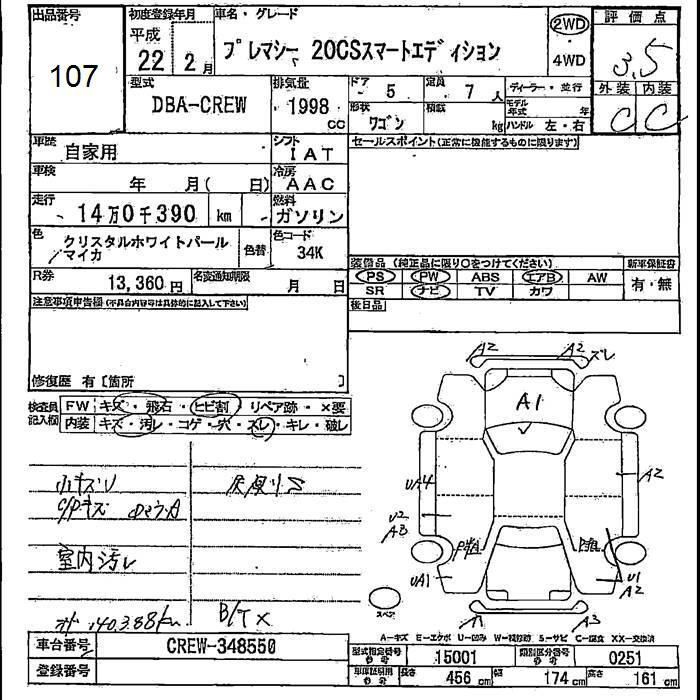 出品番号
107
初度登録年月
平成
22 2月
車名・グレード
プレマシー 20CSスマートエディション
2WD
4WD
評価点
3.5
外装 内装
C C
型式
DBA-CREW
排気量
1998
cc
ドア 5
定員 7 人
形状
ワゴン
積載
kg
ディーラー・並行
モデル年式 年
ハンドル 左・右
車歴
自家用
シフト
IAT
車検
年 月( 日)
冷房
AAC
走行
14万0千390 km
燃料
ガソリン
色
クリスタルホワイトパール
マイカ
色替
色コード
34K
R券
13,360 円
名変通知期限
月 日
セールスポイント(正常に機能するものに限ります)
装備品(純正品に限り○をつけてください)
PS PW ABS エアB AW
SR ナビ TV カワ
新車保証書
有・無
後日品
注意事項申告欄(不具合内容等は具体的に記入して下さい)
修復歴 有〔箇所 〕
検査員
記入欄
FW キズ・飛石・ヒビ割 リペア跡・×要
内装 キズ・汚レ・コゲ・穴・ズレ・キレ・破レ
小キズU
室内汚レ
B/T×
A2 A2 ズレ
A1
UA4
A2
U2
A3
UA1
U1
A2
A1 A3
スペア
A-キズ E-エクボ U-凹み W-補修跡 S-サビ C-腐食 XX-交換済
車台番号
CREW-348550
登録番号
型式指定番号
15001
類別区分番号
0251
長さ 456 cm
幅 174 cm
高さ 161 cm